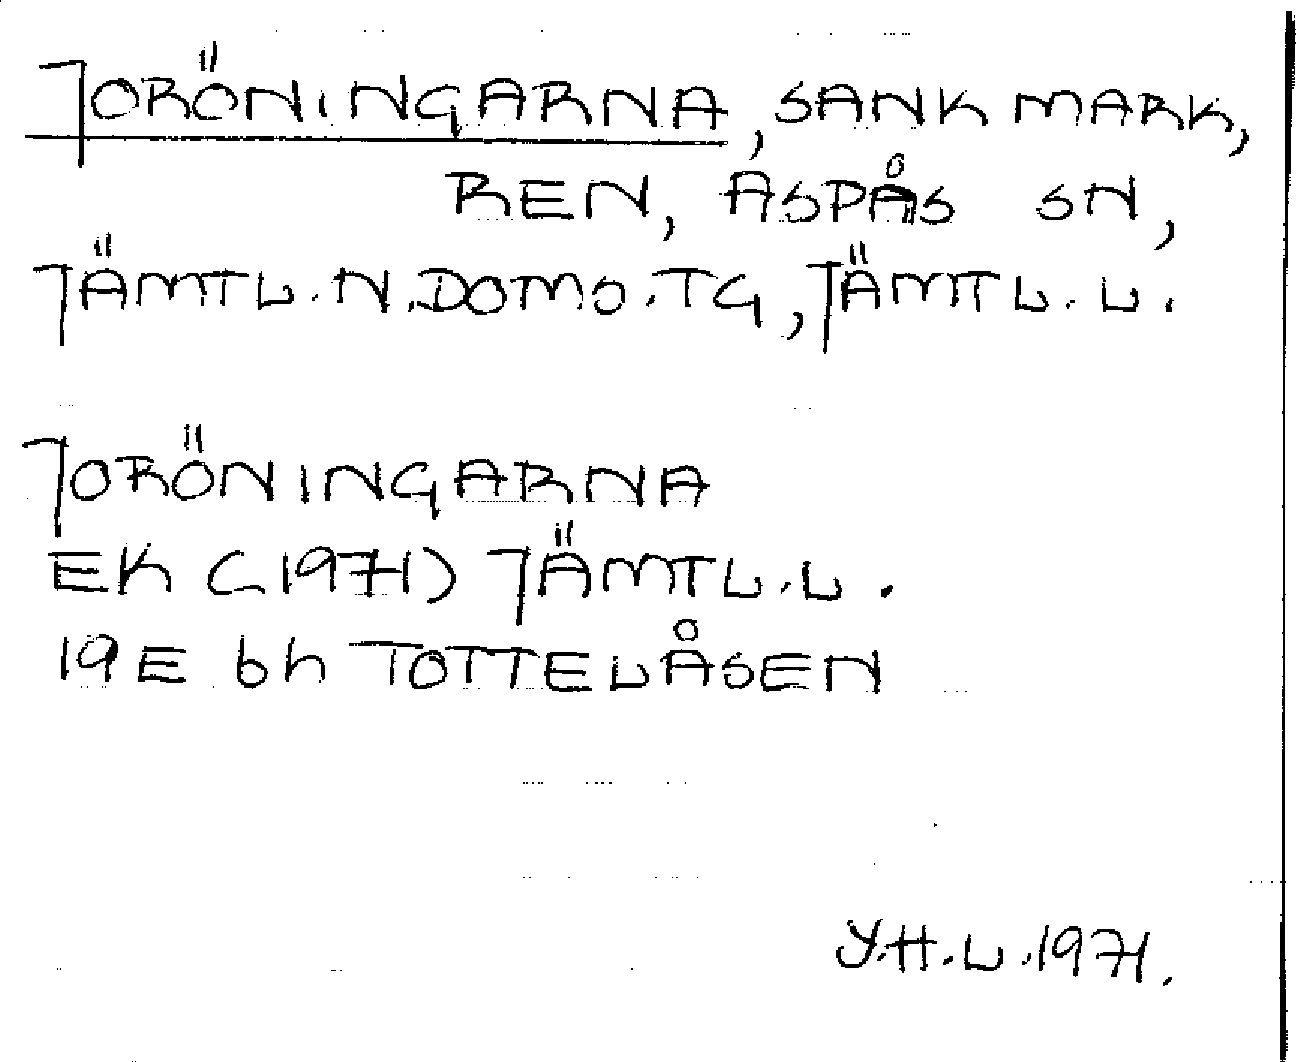 JORÖNINGARNA, SANK MARK,
REN, ASPÅS SN,
JÄMTL. N. DOMS. TG, JÄMTL. L.
JORÖNINGARNA
EK (1971) JÄMTL. L.
19E bh TOTTELÅSEN
Y.H.L. 1971.